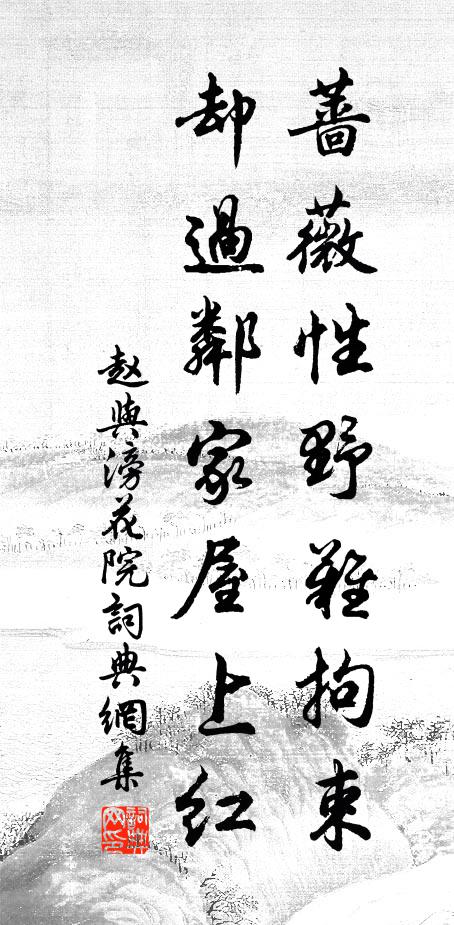 蔷薇性野難拘束
却過鄰家屋上红
赵與滂花院詞典網集